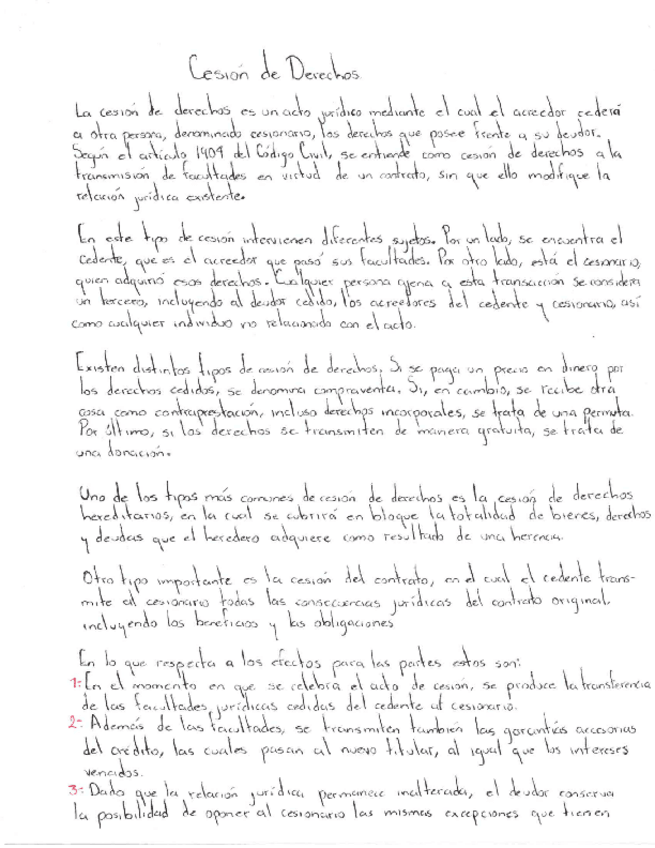 Cesión de Derechos
La cesión de derechos es un acto jurídico mediante el cual el acreedor cederá
a otra persona, denominado cesionario, los derechos que posee frente a su deudor.
Según el artículo 1909 del Código Civil, se entiende como cesión de derechos a la
transmisión de facultades en virtud de un contrato, sin que ello modifique la
relación jurídica existente.
En este tipo de cesión intervienen diferentes sujetos. Por un lado, se encuentra el
Cedente, que es el acreedor que pasó sus facultades. Por otro lado, está el cesionario,
quien adquirió esos derechos. Cualquier persona ajena a esta transacción se considera
un tercero, incluyendo al deudor cedido, los acreedores del cedente y cesionario, así
como cualquier individuo no relacionado con el acto.
Existen distintos tipos de cesión de derechos. Si se paga un precio en dinero por
los derechos cedidos, se denomina compraventa. Si, en cambio, se recibe otra
cosa como contraprestación, incluso derechos incorporales, se trata de una permuta.
Por último, si los derechos se transmiten de manera gratuita, se trata de
una donación.
Uno de los tipos más comunes de cesión de derechos es la cesión de derechos
hereditarios, en la cual se cubrirá en bloque la totalidad de bienes, derechos
y deudas que el heredero adquiere como resultado de una herencia.
Otro tipo importante es la cesión del contrato, en el cual el cedente trans-
mite al cesionario todas las consecuencias jurídicas del contrato original,
incluyendo los beneficios y las obligaciones
En lo que respecta a los efectos para las partes estos son:
1:- En el momento en que se celebra el acto de cesión, se produce la transferencia
de las facultades jurídicas cedidas del cedente al cesionario.
2:- Además de las facultades, se transmiten también las garantías accesorias
del crédito, las cuales pasan al nuevo titular, al igual que los intereses
vencidos.
3:- Dado que la relación jurídica permanece inalterada, el deudor conserva
la posibilidad de oponer al cesionario las mismas excepciones que tienen